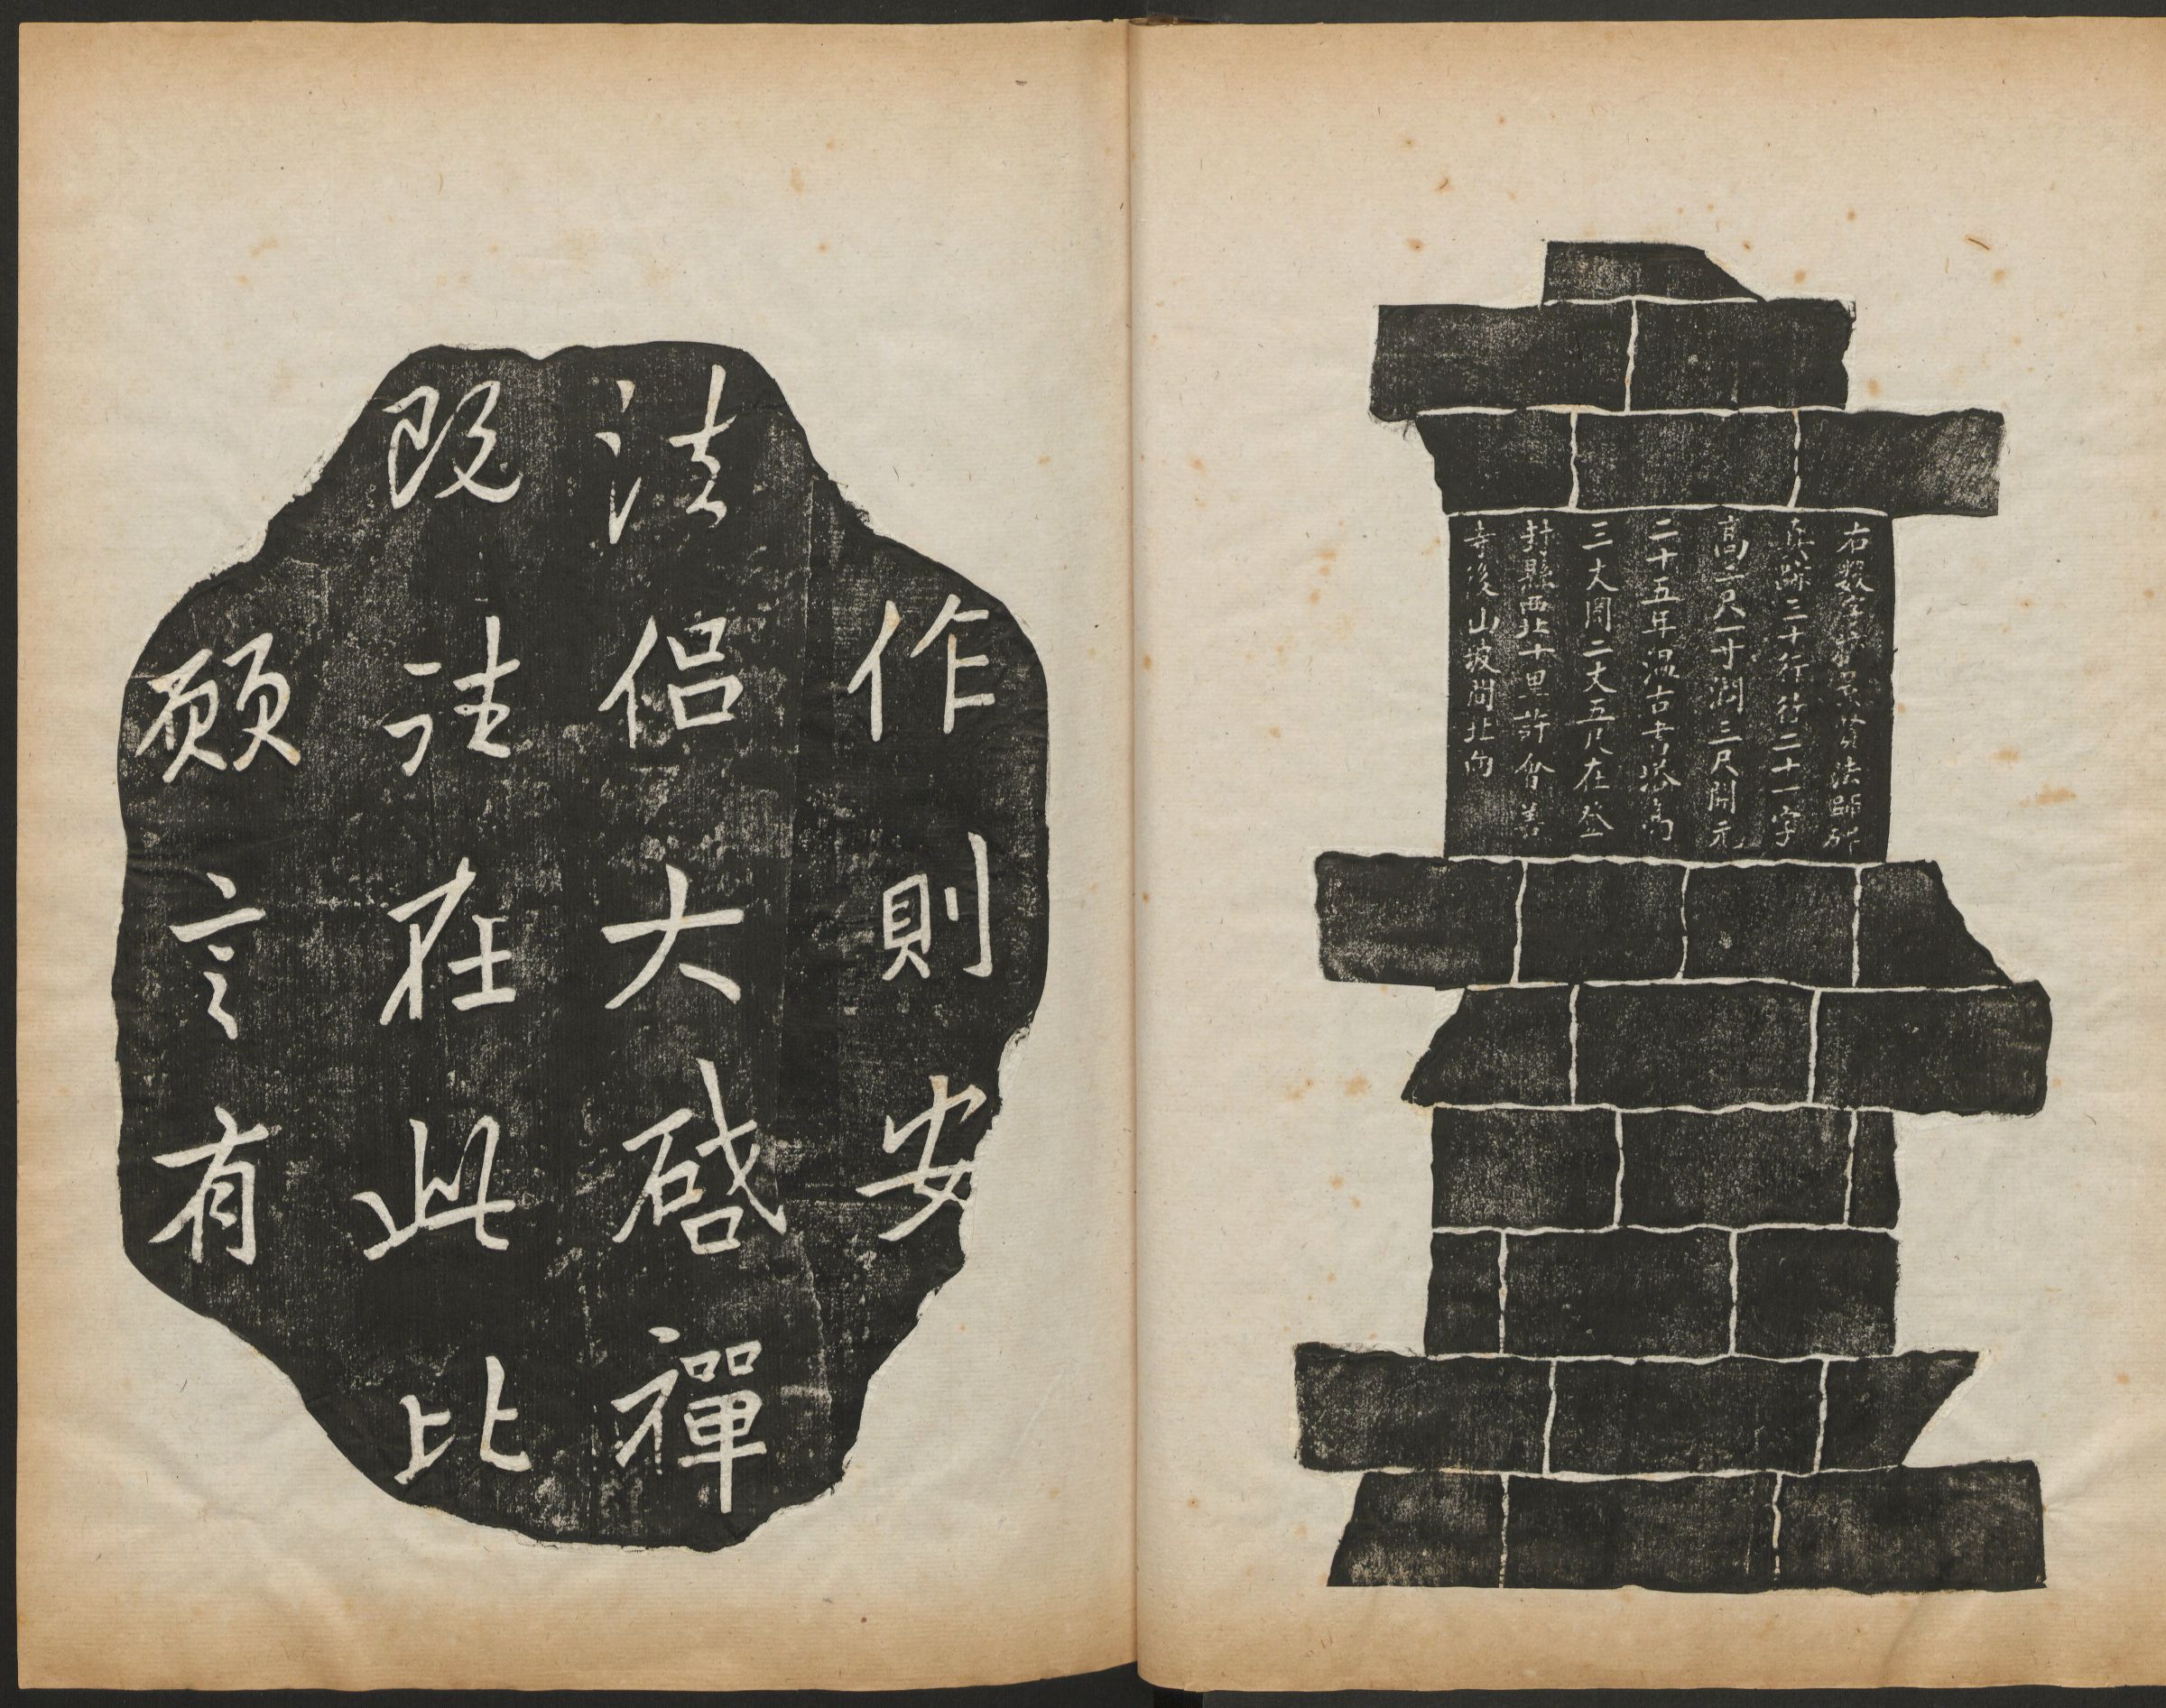 右數字摹景賢法師碑
真跡二十行行二十一字
高二尺一寸濶三尺開元
二十五年溫古書塔高
三丈周二丈五尺在登
封縣西北十里許會善
寺後山坡間北向
作則安
法侶大啓禪
既註在此比
願言有